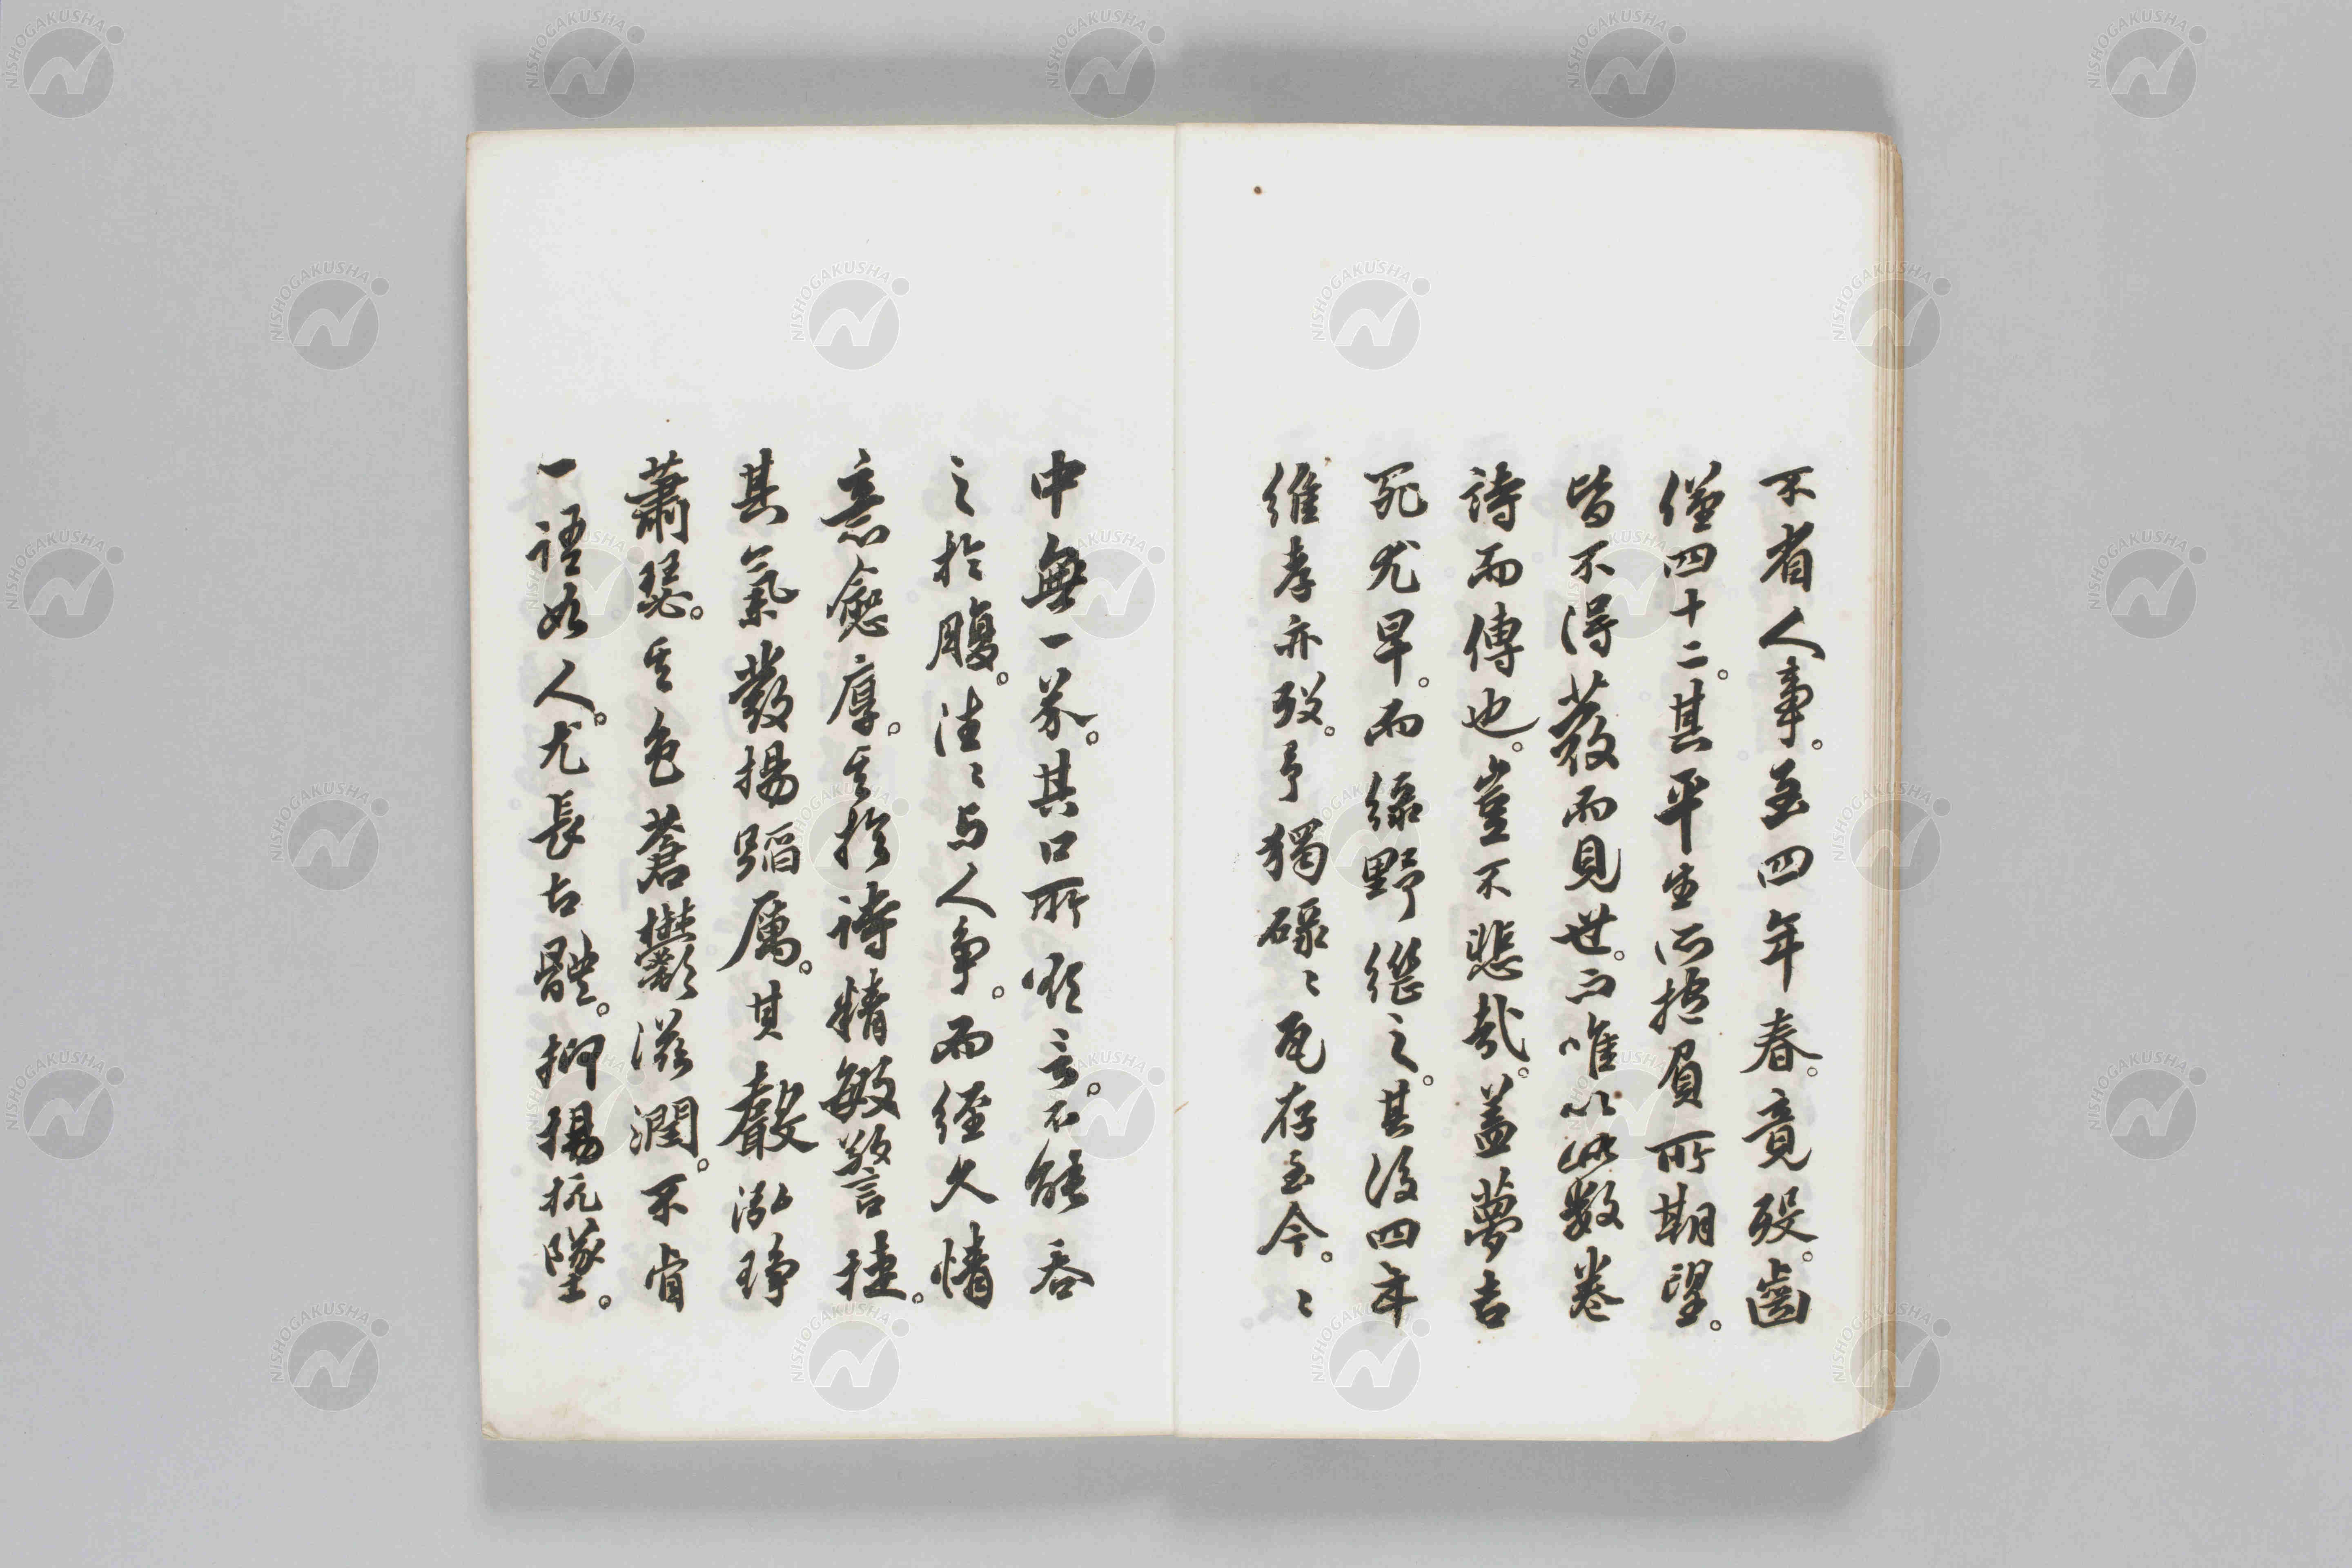 不省人事。至四年春。竟歿。齒
僅四十二。其平生所抱負所期望。
皆不得發而見世。而唯以此數卷
詩而傳也。豈不悲哉。蓋夢吉
死尤早。而綠野繼之。其後四年
維孝亦歿。予獨碌〻瓦存至今。〻
中無一芥。其口所欲言。不能吞
之於腹。往〻与人爭。而經久情
意愈厚。其於詩精敏警捷。
其氣發揚蹈厲。其聲泓琤
蕭瑟。其色蒼鬱滋潤。不肯
一語如人。尤長古體。抑揚抗墜。
NISHOGAKUSHA